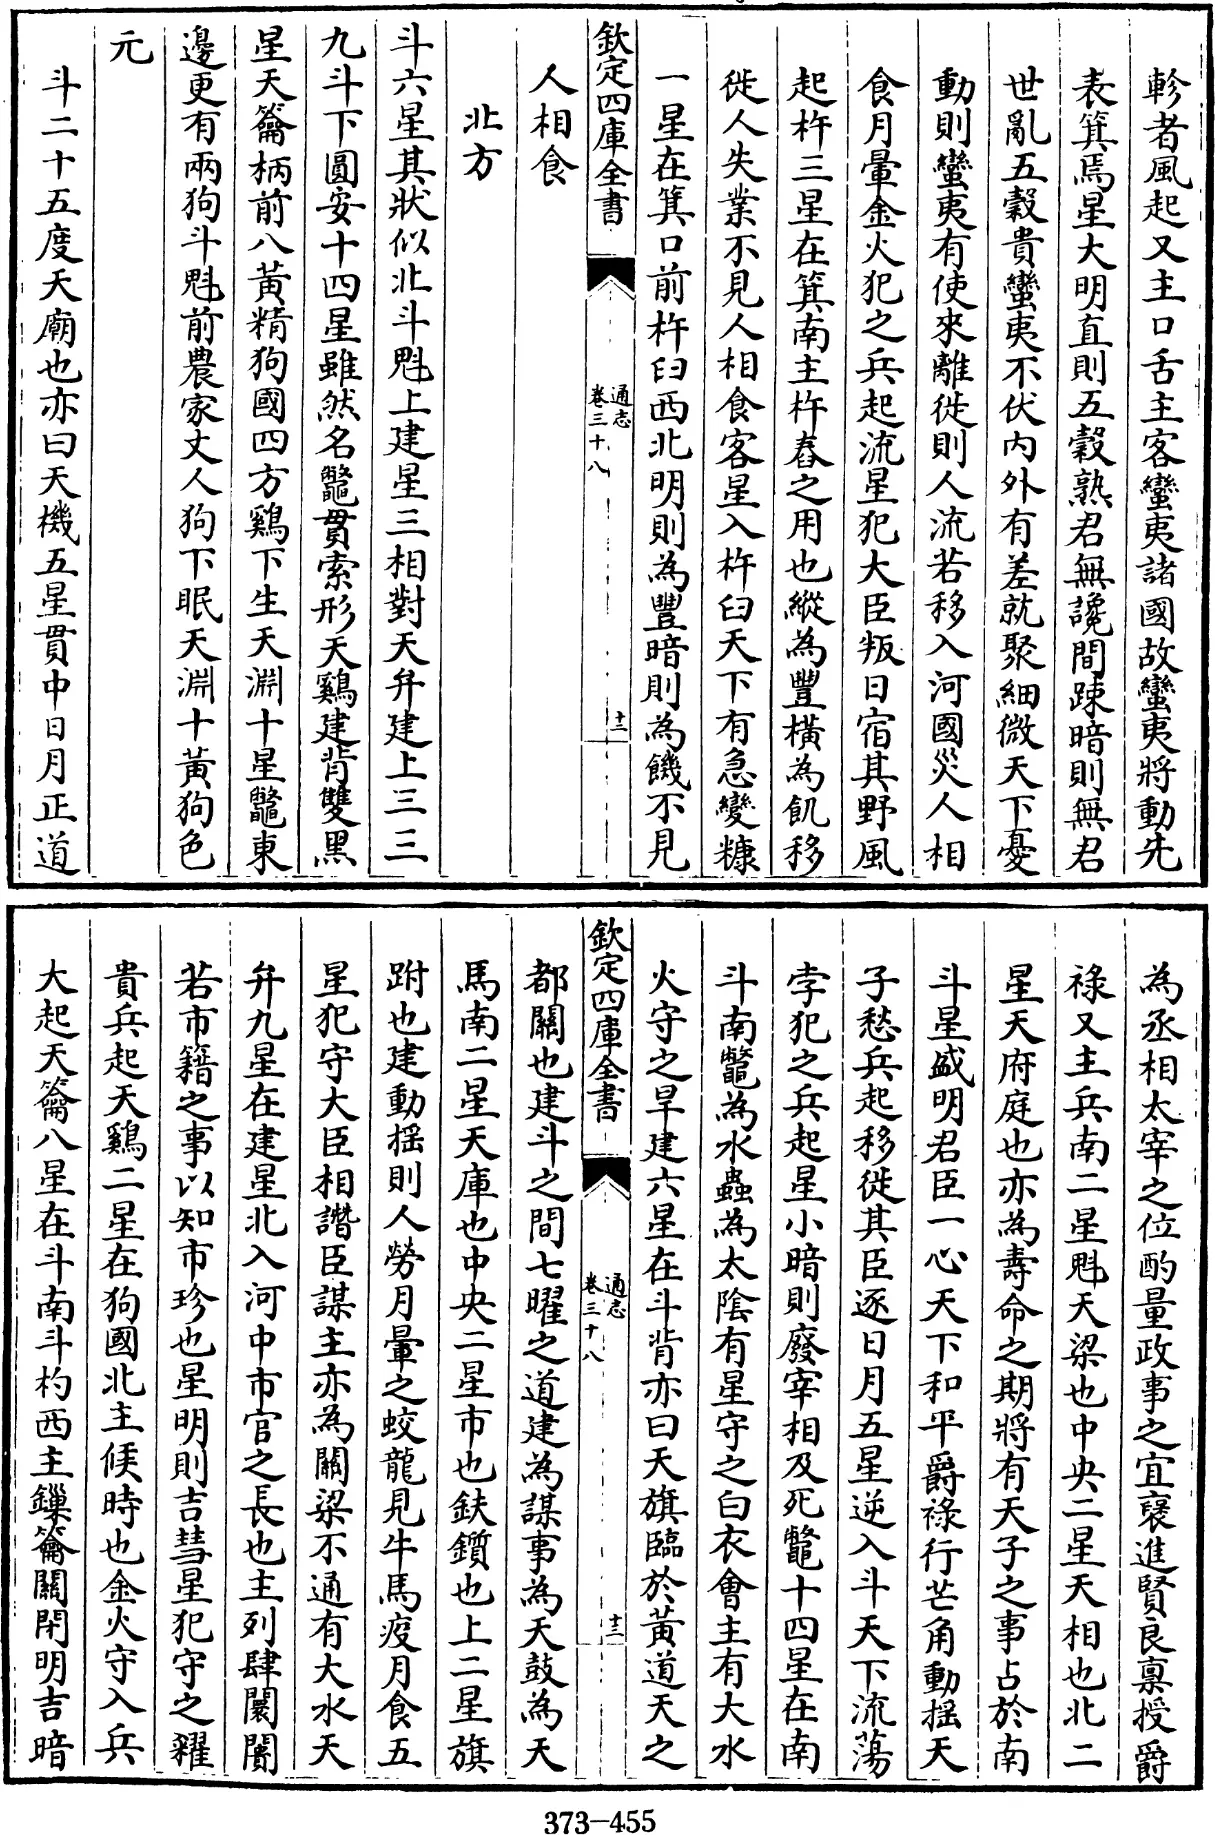 軫者風起又主口舌主客蠻夷諸國故蠻夷將動先
表箕焉星大明直則五穀熟君無讒間踈暗則無君
世亂五穀貴蠻夷不伏内外有差就聚細微天下憂
動則蠻夷有使來離徙則人流若移入河國災人相
食月暈金火犯之兵起流星犯大臣叛日宿其野風
起杵三星在箕南主杵舂之用也縱為豐横為飢移
徙人失業不見人相食客星入杵臼天下有急變糠
一星在箕口前杵臼西北明則為豐暗則為饑不見
欽定四庫全書
通志
卷三十八
十二
人相食
北方
斗六星其狀似北斗魁上建星三相對天弁建上三三
九斗下圓安十四星雖然名鼈貫索形天鷄建背雙黑
星天籥柄前八黄精狗國四方鷄下生天淵十星鼈東
邊更有兩狗斗魁前農家丈人狗下眠天淵十黄狗色
元
斗二十五度天廟也亦曰天機五星貫中日月正道
為丞相太宰之位酌量政事之宜褒進賢良禀授爵
祿又主兵南二星魁天梁也中央二星天相也北二
星天府庭也亦為壽命之期將有天子之事占於南
斗星盛明君臣一心天下和平爵祿行芒角動揺天
子愁兵起移徙其臣逐日月五星逆入斗天下流蕩
孛犯之兵起星小暗則廢宰相及死鼈十四星在南
斗南鼈為水蟲為太陰有星守之白衣會主有大水
火守之旱建六星在斗背亦曰天旗臨於黄道天之
欽定四庫全書
通志
卷三十八
十三
都關也建斗之間七曜之道建為謀事為天鼓為天
馬南二星天庫也中央二星市也鈇鑕也上二星旗
跗也建動揺則人勞月暈之蛟龍見牛馬疫月食五
星犯守大臣相譖臣謀主亦為關梁不通有大水天
弁九星在建星北入河中市官之長也主列肆闤闠
若市籍之事以知市珍也星明則吉彗星犯守之糴
貴兵起天鷄二星在狗國北主候時也金火守入兵
大起天籥八星在斗南斗杓西主鏁籥關閉明吉暗
373-455